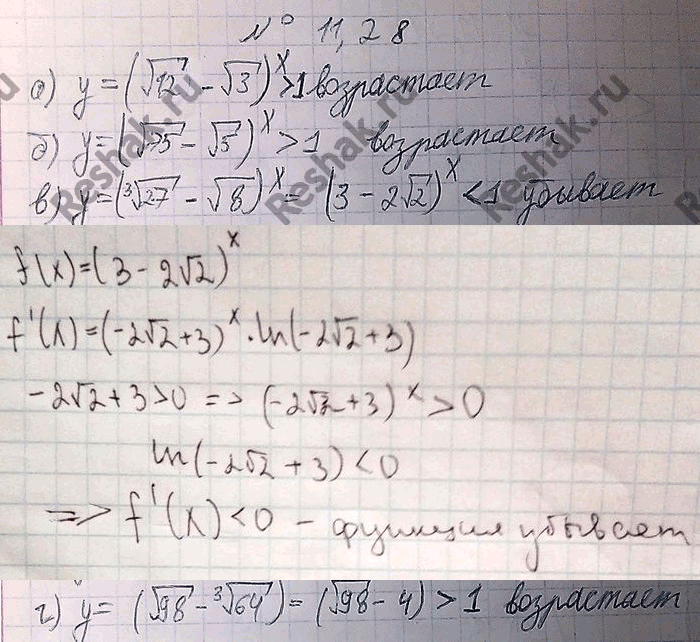 № 11,28
а) y = (√12 - √3)^x >1 возрастает
б) y = (√25 - √5)^x > 1 возрастает
в) y = (³√27 - √8)^x = (3 - 2√2)^x < 1 убывает
f(x) = (3 - 2√2)^x
f'(x) = (-2√2+3)^x · ln(-2√2+3)
-2√2+3>0 => (-2√2+3)^x > 0
ln(-2√2+3) < 0
=> f'(x) < 0 - функция убывает
г) y = (√98 - ³√64) = (√98 - 4) > 1 возрастает
Reshak.ru
Reshak.ru
Reshak.ru